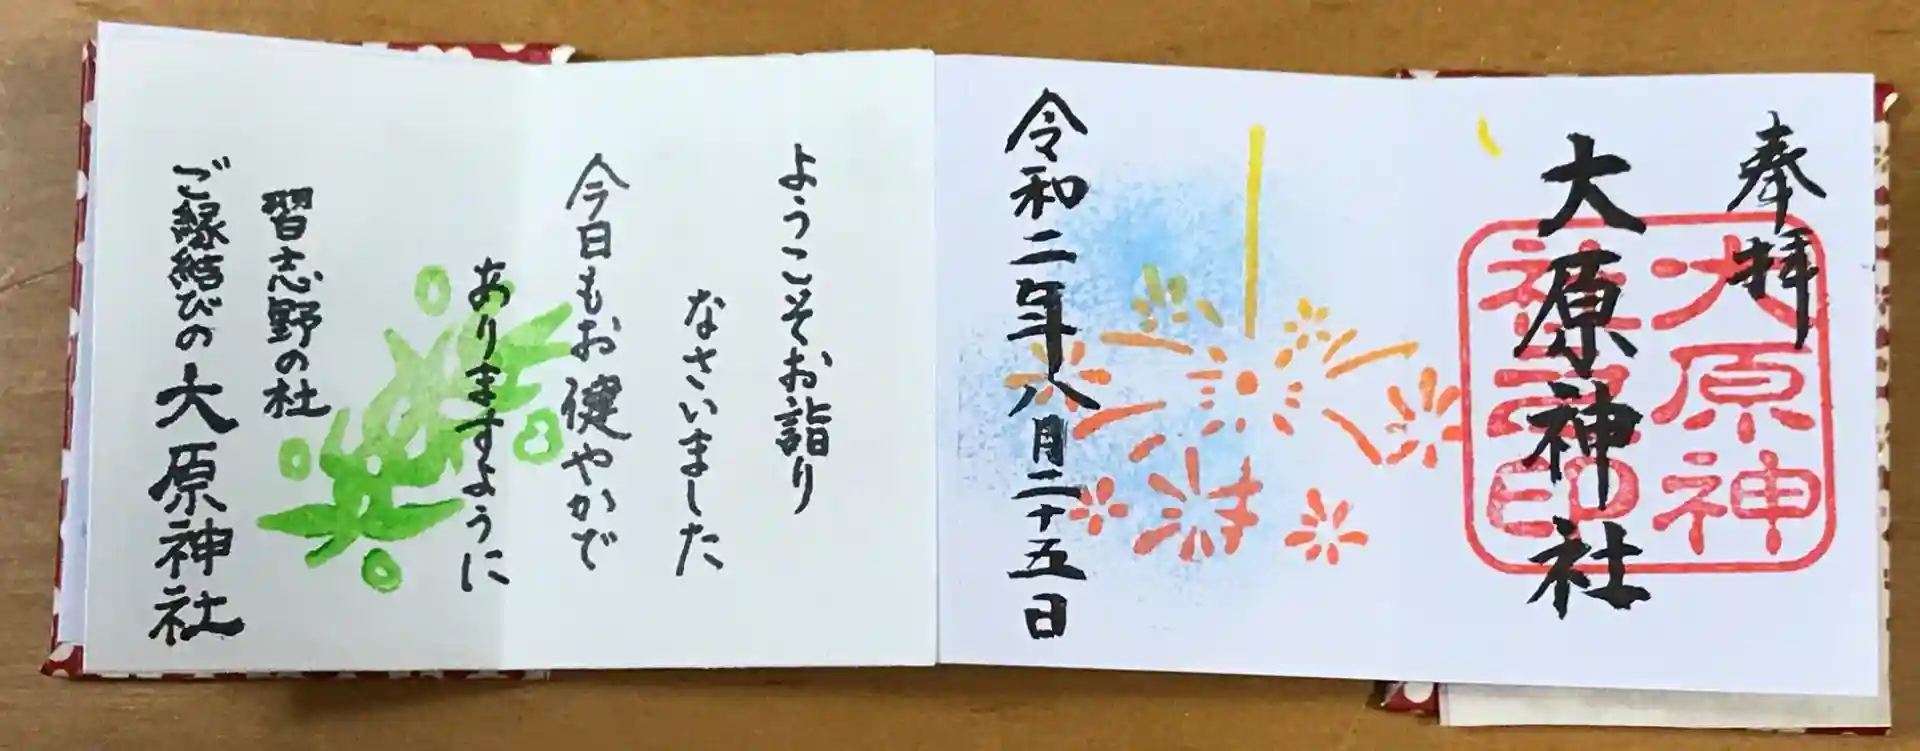 奉拝
大原神社
大原神
社之印
令和二年八月二十五日
ようこそお詣り
なさいました
今日もお健やかで
ありますように
習志野の杜
ご縁結びの大原神社